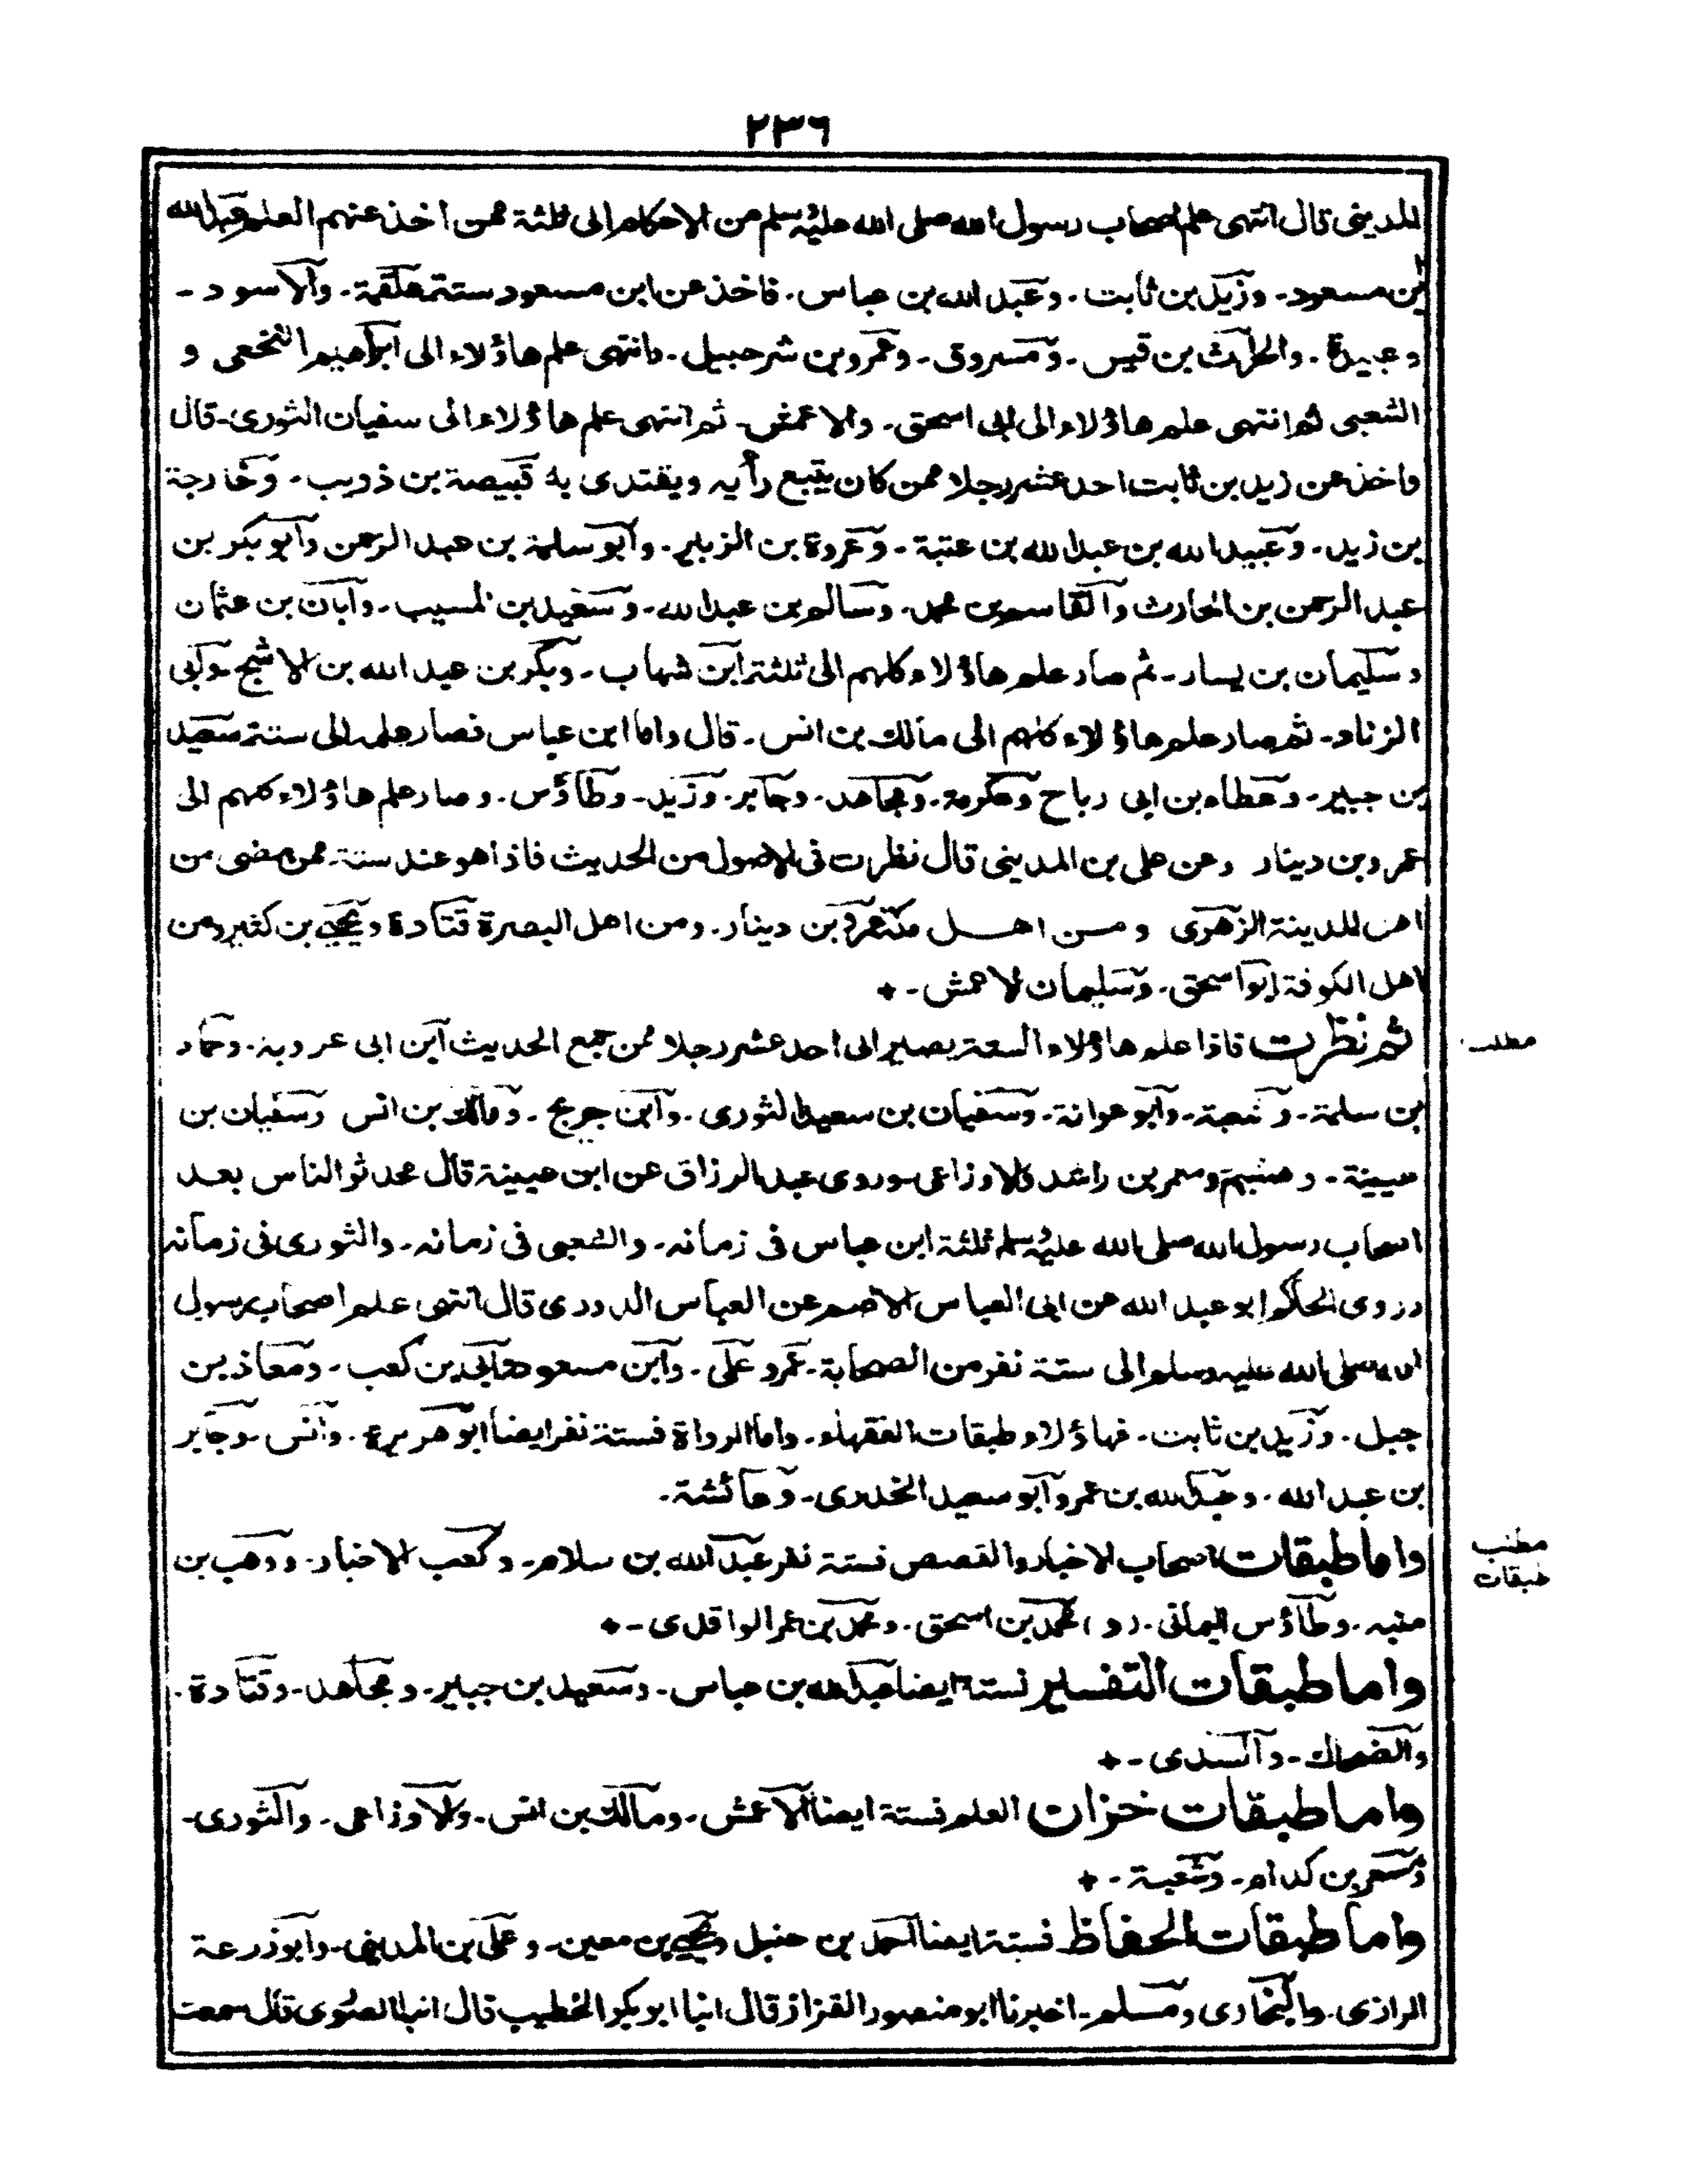 ٢٣٦
المديني قال انتهى علم اصحاب رسول الله صلى الله عليه وسلم من الاحكام الى ثلثة ممن اخذ عنهم العلم عبد الله
بن مسعود - وزيد بن ثابت - وعبد الله بن عباس - فاخذ عن ابن مسعود ستة علقمة - والاسود -
وعبيدة - والحرث بن قيس - ومسروق - وعمرو بن شرحبيل - وانتهى علم هاؤلاء الى ابراهيم النخعى و
الشعبى ثم انتهى علم هاؤلاء الى ابى اسحق - والاعمش - ثم انتهى علم هاؤلاء الى سفيان الثورى - قال
واخذ عن زيد بن ثابت احد عشر رجلا ممن كان يتبع رأيه ويقتدى به قبيصة بن ذويب - وخارجة
بن زيد - وعبيد الله بن عبد الله بن عتبة - وعروة بن الزبير - وابو سلمة بن عبد الرحمن وابو بكر بن
عبد الرحمن بن الحارث والقاسم بن محمد - وسالم بن عبد الله - وسعيد بن المسيب - وابان بن عثمان
وسليمان بن يسار - ثم صار علم هاؤلاء كلهم الى ثلثة ابن شهاب - وبكر بن عبد الله بن الاشج - وابى
الزناد - ثم صار علم هاؤلاء كلهم الى مالك بن انس - قال واما ابن عباس فصار علمه الى ستة سعيد
بن جبير - وعطاء بن ابى رباح وعكرمة - ومجاهد - وجابر - وزيد - وطاؤس - وصار علم هاؤلاء كلهم الى
عمرو بن دينار وعن على بن المدينى قال نظرت فى الاصول من الحديث فاذا هو عند ستة ممن مضى من
اهل المدينة الزهرى ومن اهل مكة عمرو بن دينار - ومن اهل البصرة قتادة ويحيى بن كثير ومن
اهل الكوفة ابو اسحق - وسليمان الاعمش - +
ثم نظرت فاذا علم هاؤلاء الستة يصير الى احد عشر رجلا ممن جمع الحديث ابن ابى عروبة - وحماد
مطلب
بن سلمة - وشعبة - وابو عوانة - وسفيان بن سعيد الثورى - وابن جريج - ومالك بن انس وسفيان بن
عيينة - وهشيم ومعمر بن راشد والاوزاعى - وروى عبد الرزاق عن ابن عيينة قال محدثو الناس بعد
اصحاب رسول الله صلى الله عليه وسلم ثلثة ابن عباس فى زمانه - والشعبى فى زمانه - والثورى فى زمانه
وروى الحاكم ابو عبد الله عن ابى العباس الاصم عن العباس الدورى قال انتهى علم اصحاب رسول
الله صلى الله عليه وسلم الى ستة نفر من الصحابة - عمر وعلى - وابن مسعود وابى بن كعب - ومعاذ بن
جبل - وزيد بن ثابت - فهاؤلاء طبقات الفقهاء - واما الرواة فستة نفر ايضا ابو هريرة - وانس - وجابر
بن عبد الله - وعبد الله بن عمر وابو سعيد الخدرى - وعائشة -
واما طبقات اصحاب الاخبار والقصص فستة نفر عبد الله بن سلام - وكعب الاحبار - ووهب بن
مطلب
طبقات
منبه - وطاؤس اليمانى - (و) محمد بن اسحق - ومحمد بن عمر الواقدى - +
واما طبقات التفسير فستة ايضا عبد الله بن عباس - وسعيد بن جبير - ومجاهد - وقتادة -
والضحاك - والسدى - +
واما طبقات خزان العلم فستة ايضا الاعمش - ومالك بن انس - والاوزاعى - والثورى -
ومسعر بن كدام - وشعبة - +
واما طبقات الحفاظ فستة ايضا احمد بن حنبل ويحيى بن معين - وعلى بن المدينى - وابو زرعة
الرازى - والبخارى ومسلم - اخبرنا ابو منصور القزاز قال انبا ابو بكر الخطيب قال انبا الصورى قال سمعت